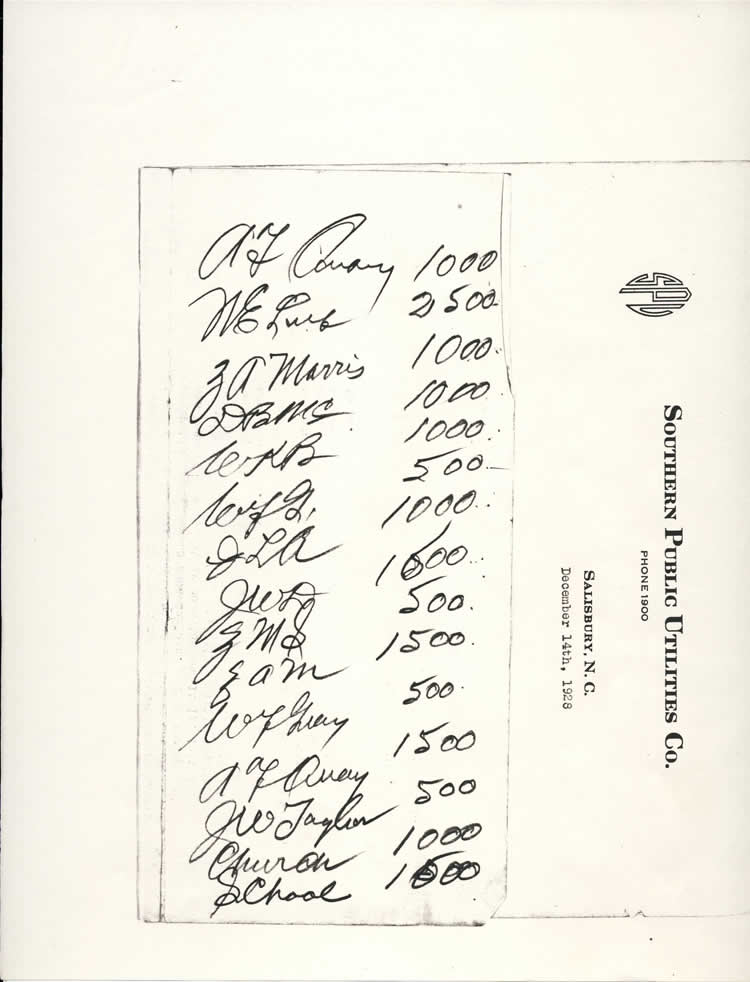 A F 1000
W E 2500
Z A Morris 1000
D B Mc 1000
W K B 1000
W F G. 500
J L A 1000
J W
Z M S 500
Z A M 1500
W F Gray 500
A F Quay 1500
J W Taylor 500
Church 1000
School 1500
SPU
SOUTHERN PUBLIC UTILITIES CO.
PHONE 1900
SALISBURY, N. C.
December 14th, 1928